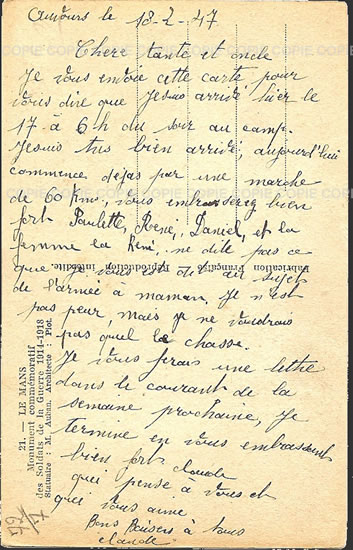 Auvours le 18-2-47
Chere tante et oncle
Je vous envoie cette carte pour
vous dire que Jesuis arrivé hier le
17 à 6 h du soir au camp.
Jesuis tres bien arrivé, aujourd'hui
commence dejas par une marche
de 60 kms, vous embrasserez bien
fort Paulette, René, Daniel, et la
femme la René, ne dite pas ce
que je vous ai dit au sujet
de l'armée à maman, Je n'est
pas peur, mais je ne voudrais
pas quel le chasse.
Je vous ferais une lettre
dans le courant de la
semaine prochaine, Je
termine en vous embrassant
bien fort Claude
qui pense à vous et
qui vous aime
Bons Baisers à tous
Claude
Fabrication Française - Reproduction interdite.
21. — LE MANS
Monument commémoratif
des Soldats de la Guerre 1914-1918
Statuaire : M. Auban. Architecte : Plot.
COPIE COPIE COPIE COPIE